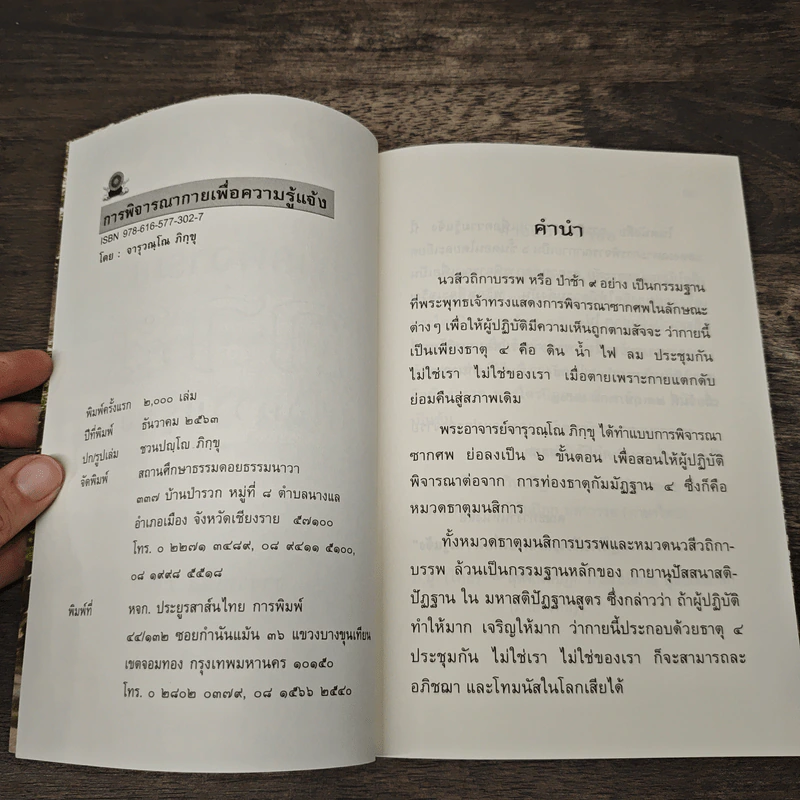 การพิจารณากายเพื่อความรู้แจ้ง
ISBN 978-616-577-302-7
โดย : จารุวณฺโณ ภิกฺขุ
พิมพ์ครั้งแรก ๒,๐๐๐ เล่ม
ปีที่พิมพ์ ธันวาคม ๒๕๖๓
ปก/รูปเล่ม ชวนปญฺโญ ภิกฺขุ
จัดพิมพ์ สถานศึกษาธรรมดอยธรรมนาวา
๓๓๗ บ้านป่ารวก หมู่ที่ ๘ ตำบลนางแล
อำเภอเมือง จังหวัดเชียงราย ๕๗๑๐๐
โทร. ๐ ๒๒๗๑ ๓๔๘๙, ๐๘ ๙๔๑๑ ๕๑๐๐,
๐๘ ๑๙๙๘ ๕๕๑๘
พิมพ์ที่ หจก. ประยูรสาส์นไทย การพิมพ์
๔๔/๑๓๒ ซอยกำนันแม้น ๓๖ แขวงบางขุนเทียน
เขตจอมทอง กรุงเทพมหานคร ๑๐๑๕๐
โทร. ๐ ๒๘๐๒ ๐๓๗๙, ๐๘ ๑๕๖๖ ๒๕๔๐
คำนำ
นวสีวถิกาบรรพ หรือ ป่าช้า ๙ อย่าง เป็นกรรมฐาน
ที่พระพุทธเจ้าทรงแสดงการพิจารณาซากศพในลักษณะ
ต่างๆ เพื่อให้ผู้ปฏิบัติมีความเห็นถูกตามสัจจะ ว่ากายนี้
เป็นเพียงธาตุ ๔ คือ ดิน น้ำ ไฟ ลม ประชุมกัน
ไม่ใช่เรา ไม่ใช่ของเรา เมื่อตายเพราะกายแตกดับ
ย่อมคืนสู่สภาพเดิม
พระอาจารย์จารุวณฺโณ ภิกฺขุ ได้ทำแบบการพิจารณา
ซากศพ ย่อลงเป็น ๖ ขั้นตอน เพื่อสอนให้ผู้ปฏิบัติ
พิจารณาต่อจาก การท่องธาตุกัมมัฏฐาน ๔ ซึ่งก็คือ
หมวดธาตุมนสิการ
ทั้งหมวดธาตุมนสิการบรรพและหมวดนวสีวถิกา-
บรรพ ล้วนเป็นกรรมฐานหลักของ กายานุปัสสนาสติ-
ปัฏฐาน ใน มหาสติปัฏฐานสูตร ซึ่งกล่าวว่า ถ้าผู้ปฏิบัติ
ทำให้มาก เจริญให้มาก ว่ากายนี้ประกอบด้วยธาตุ ๔
ประชุมกัน ไม่ใช่เรา ไม่ใช่ของเรา ก็จะสามารถละ
อภิชฌา และโทมนัสในโลกเสียได้